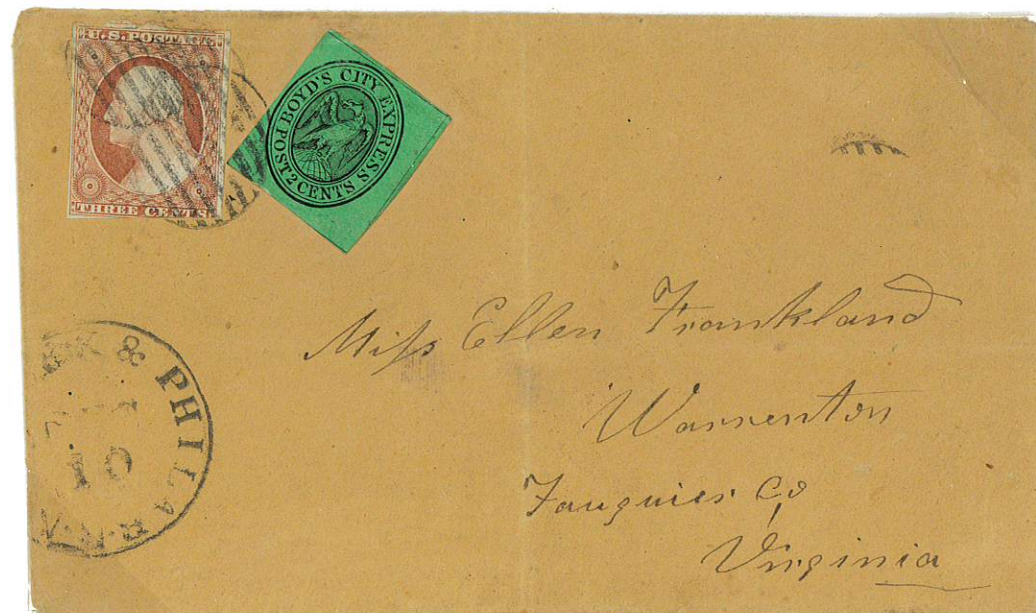 U.S. POSTAGE
THREE CENTS
BOYD'S CITY EXPRESS POST 2 CENTS
& PHILA R.R.
10
Miss Ellen Frankland
Warrenton
Fauquier Co
Virginia